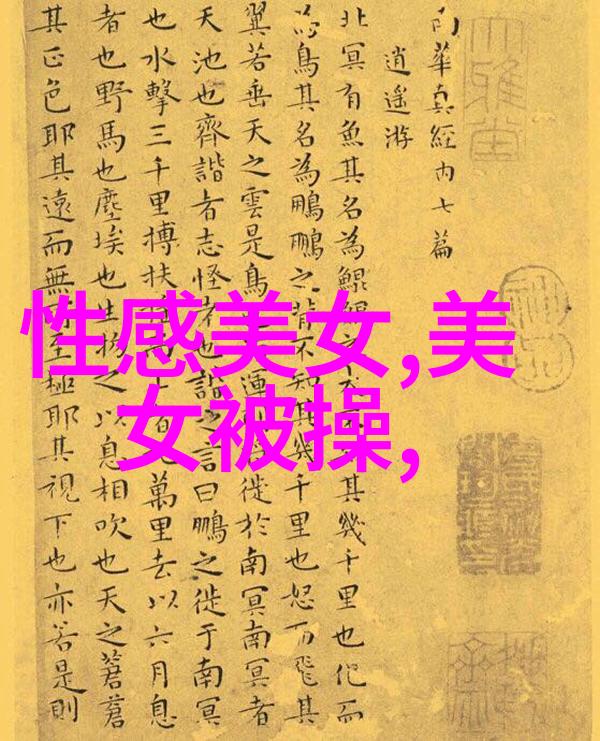 南華真經内七篇
逍遥游
北冥有魚其名為鯤其幾千里也化而
為鳥其名為鵬鵬之背不知其幾千里也怒而飛其
翼若垂天之雲是鳥運徙於南冥南冥者
天池也齊諧者志怪者也諧之言曰鵬之徙于南冥
也水擊三千里搏扶上者九萬里去以六月息
者也野馬也塵埃也生物之以息相吹也天之蒼蒼
其正色耶其遠而無所至極耶其視下也亦若是則
性感美女,美
女被操,